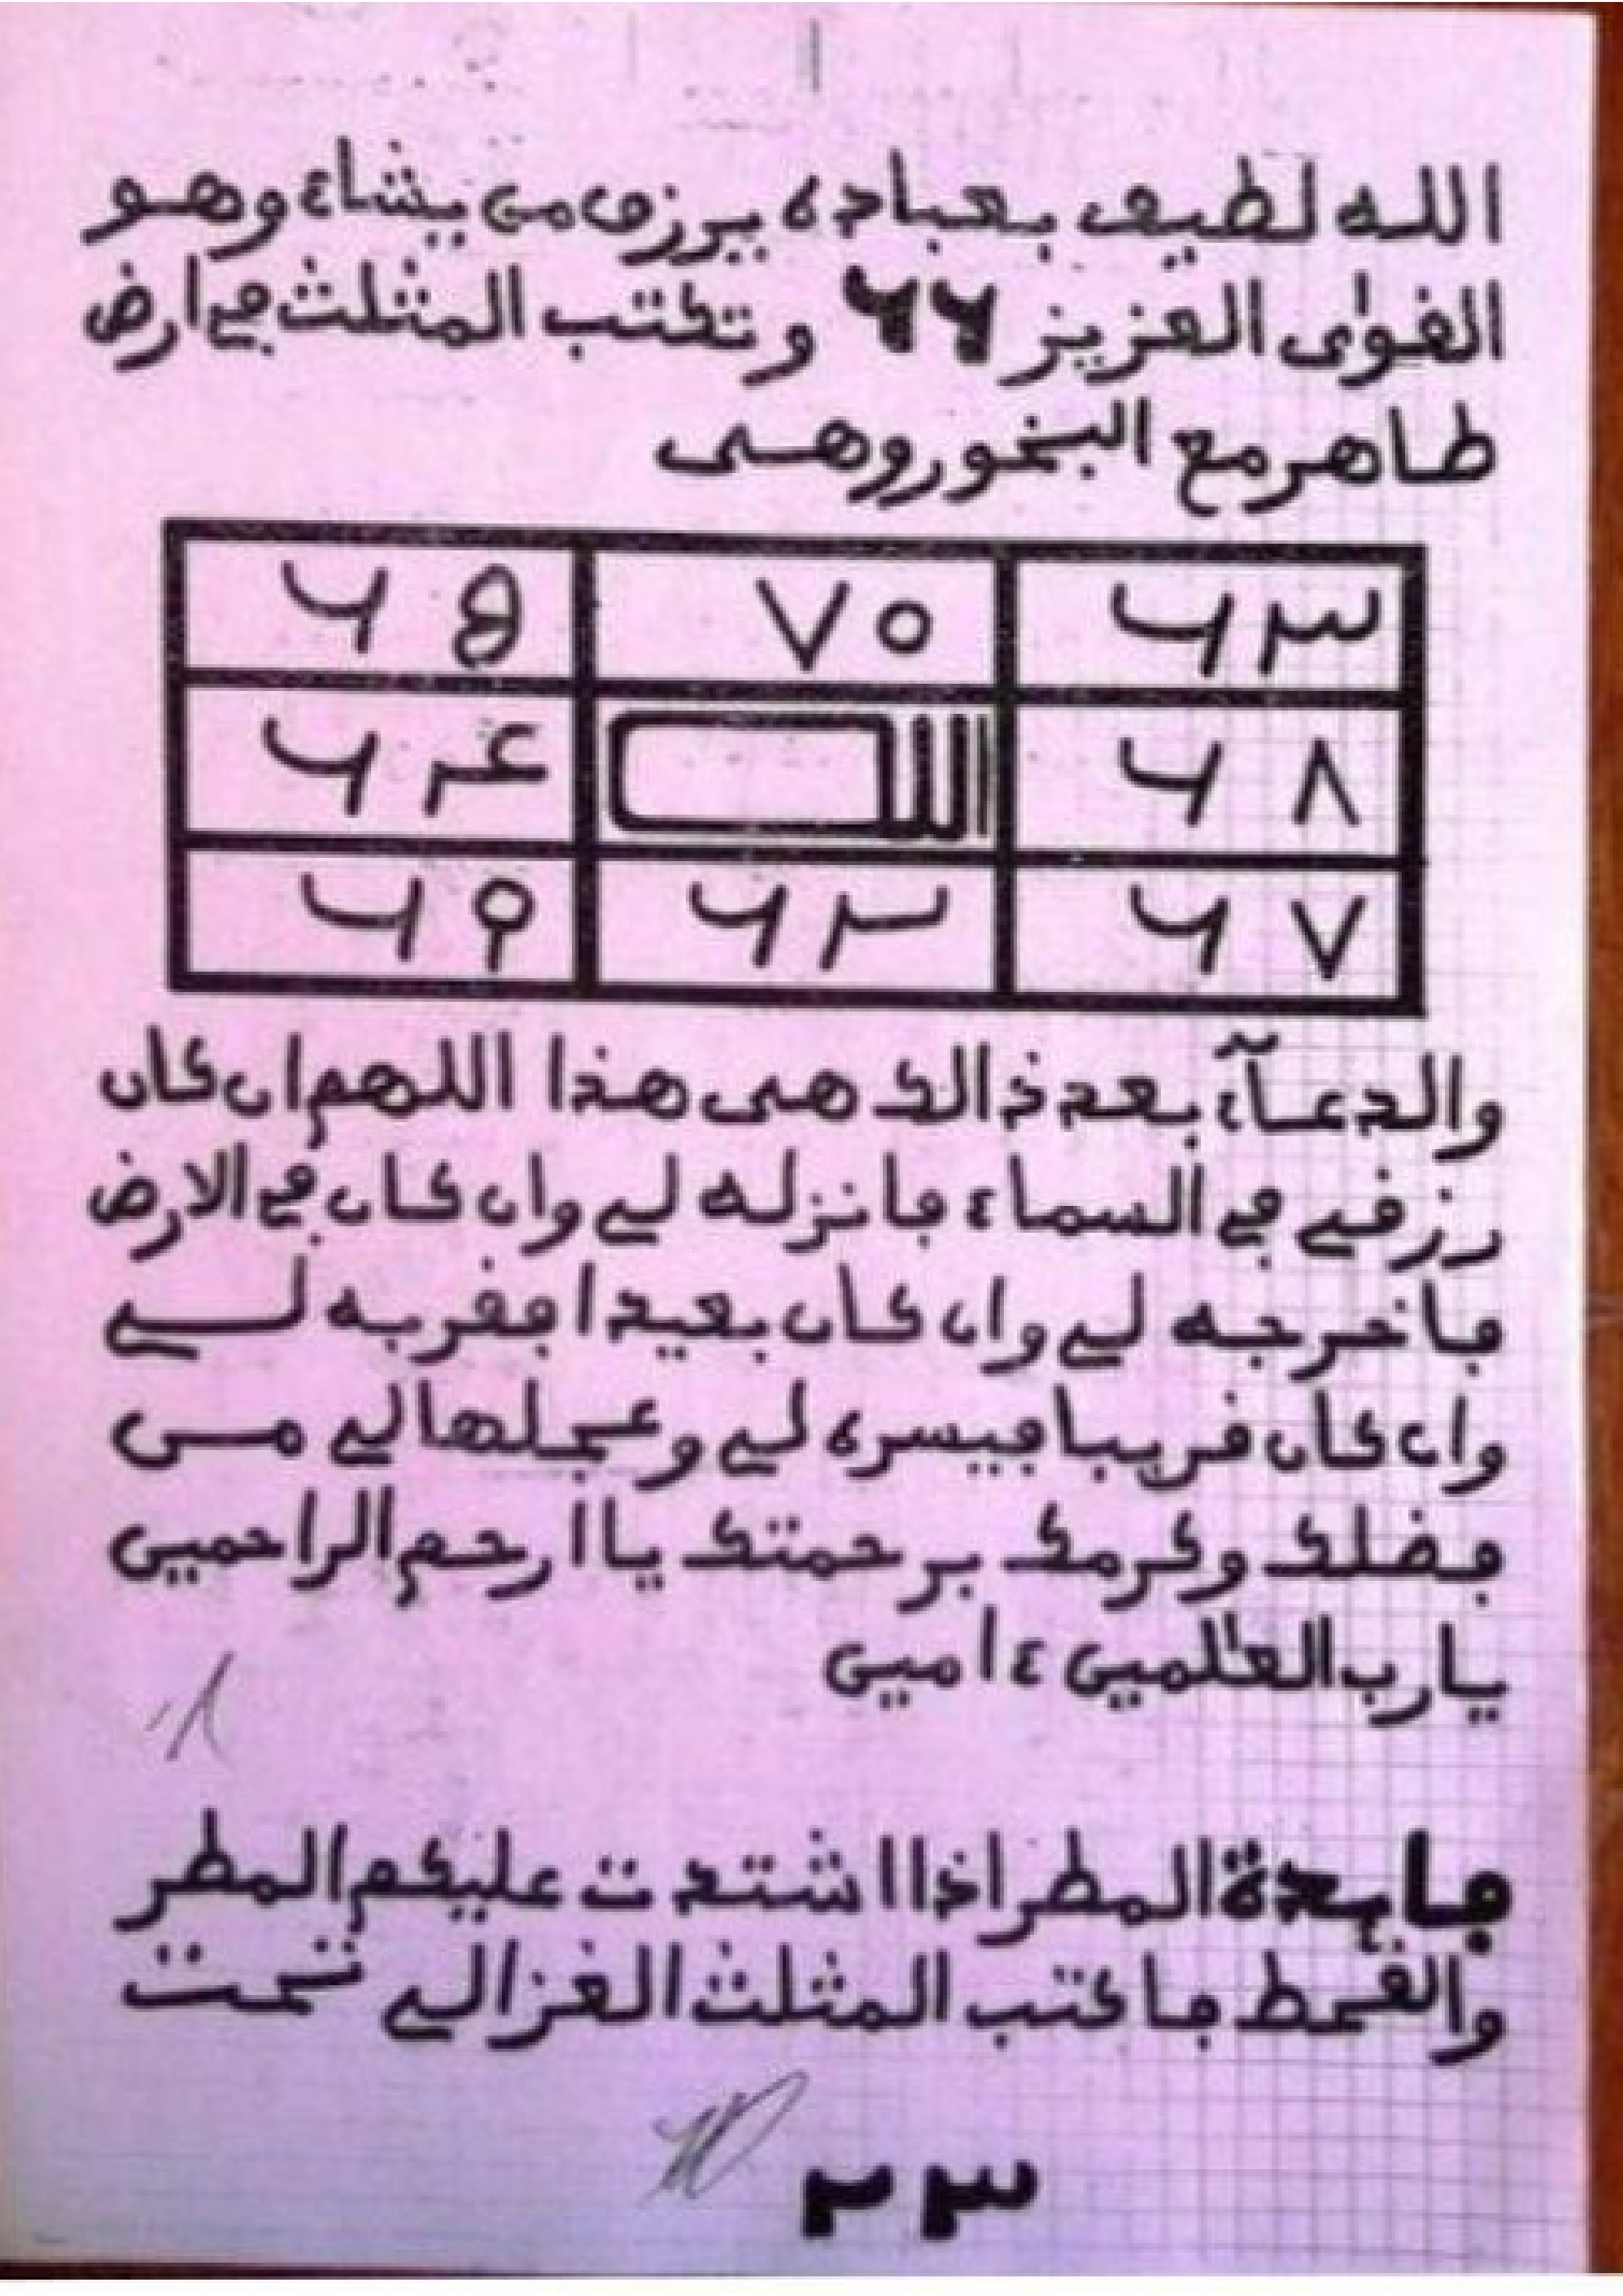 الله لطيف بعباده يرزق من يشاء وهو
القوى العزيز ٦٦ وتكتب المثلث في ارض
طاهر مع البخور وهى
٦٣ ٧٥ ٦٥
٦٨ الله ٦٤
٦٧ ٦٢ ٦٩
والدعآء بعد ذالك هى هذا اللهم ان كان
رزقي في السماء فانزله لي وان كان في الارض
فاخرجه لي وان كان بعيدا فقربه لي
وان كان قريبا فيسره لي وعجلها لي من
فضلك وكرمك برحمتك يا ارحم الراحمين
يارب العلمين ءامين
فايدة المطر اذا اشتدت عليكم المطر
والقحط فاكتب المثلث الغزالي تحت
٢٣